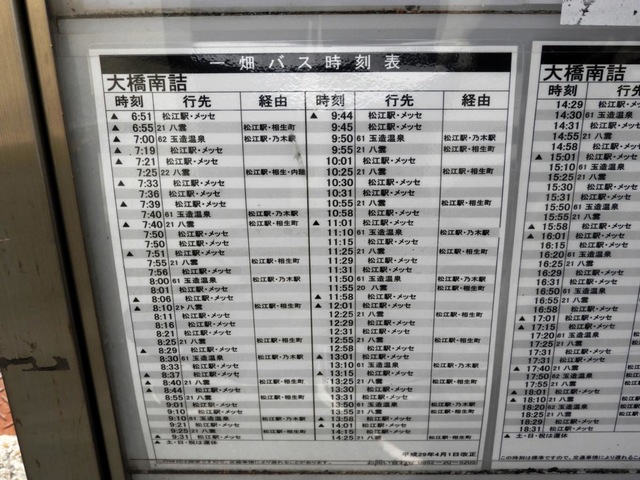 一畑バス時刻表
大橋南詰
時刻 行先 経由 時刻 行先 経由
▲ 6:51 松江駅・メッセ
▲ 6:55 21 八雲 松江駅・相生町
▲ 7:00 62 玉造温泉 松江駅・乃木駅
▲ 7:19 松江駅・メッセ
▲ 7:21 松江駅・メッセ
7:25 22 八雲
▲ 7:33 松江駅・メッセ
7:36 松江駅・メッセ
▲ 7:39 松江駅・メッセ
7:40 61 玉造温泉 松江駅・乃木駅
▲ 7:40 21 八雲 松江駅・相生町
7:50 松江駅・メッセ
7:50 松江駅・メッセ
▲ 7:51 松江駅・メッセ
7:55 21 八雲 松江駅・相生町
7:56 松江駅・メッセ
8:00 61 玉造温泉 松江駅・乃木駅
8:01 松江駅・メッセ
▲ 8:06 松江駅・メッセ
▲ 8:10 21 八雲 松江駅・相生町
8:11 松江駅・メッセ
8:16 松江駅・メッセ
8:21 松江駅・メッセ
8:25 21 八雲 松江駅・相生町
▲ 8:29 松江駅・メッセ
8:30 61 玉造温泉 松江駅・乃木駅
8:33 松江駅・メッセ
▲ 8:37 松江駅・メッセ
▲ 8:40 21 八雲 松江駅・相生町
▲ 8:44 松江駅・メッセ
8:55 21 八雲 松江駅・相生町
9:01 松江駅・メッセ
9:10 61 玉造温泉 松江駅・乃木駅
9:21 松江駅・メッセ
9:25 21 八雲 松江駅・相生町
▲ 9:31 松江駅・メッセ
▲ 土・日・祝は運休
▲ 9:44 松江駅・メッセ
9:45 松江駅・メッセ
9:50 61 玉造温泉 松江駅・乃木駅
9:55 21 八雲 松江駅・相生町
10:01 松江駅・メッセ
10:25 21 八雲 松江駅・相生町
10:30 松江駅・メッセ
10:31 松江駅・メッセ
10:55 21 八雲 松江駅・相生町
10:58 松江駅・メッセ
▲ 11:01 松江駅・メッセ
11:10 61 玉造温泉 松江駅・乃木駅
11:15 松江駅・メッセ
11:25 21 八雲 松江駅・相生町
11:29 松江駅・メッセ
11:31 松江駅・メッセ
11:50 61 玉造温泉 松江駅・乃木駅
11:55 20 八雲 松江駅・相生町
▲ 11:58 松江駅・メッセ
▲ 12:01 松江駅・メッセ
12:25 21 八雲 松江駅・相生町
12:29 松江駅・メッセ
12:31 松江駅・メッセ
12:55 21 八雲 松江駅・相生町
12:58 松江駅・メッセ
▲ 13:01 松江駅・メッセ
13:10 61 玉造温泉 松江駅・乃木駅
▲ 13:15 松江駅・メッセ
13:25 21 八雲 松江駅・相生町
13:30 松江駅・メッセ
13:31 松江駅・メッセ
13:50 61 玉造温泉 松江駅・乃木駅
13:55 21 八雲 松江駅・相生町
▲ 13:58 松江駅・メッセ
▲ 14:01 松江駅・メッセ
14:15 松江駅・メッセ
14:25 21 八雲 松江駅・相生町
平成29年4月1日改正
大橋南詰
時刻 行先
14:29 松江駅・メッセ
14:30 61 玉造温泉
14:31 松江駅・メッセ
14:55 21 八雲
14:58 松江駅・メッセ
▲ 15:01 松江駅・メッセ
15:10 61 玉造温泉
15:25 21 八雲
15:30 松江駅・メッセ
15:31 松江駅・メッセ
15:50 61 玉造温泉
15:55 21 八雲
▲ 15:58 松江駅・メッセ
▲ 16:01 松江駅・メッセ
16:15 松江駅・メッセ
16:20 61 玉造温泉
16:25 21 八雲
16:29 松江駅・メッセ
16:31 松江駅・メッセ
16:50 61 玉造温泉
16:55 21 八雲
16:58 松江駅・メッセ
▲ 17:01 松江駅・メッセ
▲ 17:15 松江駅・メッセ
17:20 61 玉造温泉
17:25 21 八雲
17:31 松江駅・メッセ
17:31 松江駅・メッセ
▲ 17:40 21 八雲
17:50 62 玉造温泉
17:55 21 八雲
▲ 18:01 松江駅・メッセ
▲ 18:10 21 八雲
18:20 62 玉造温泉
18:25 21 八雲
18:31 松江駅・メッセ
この時刻は標準ですので、交通事情により遅れること